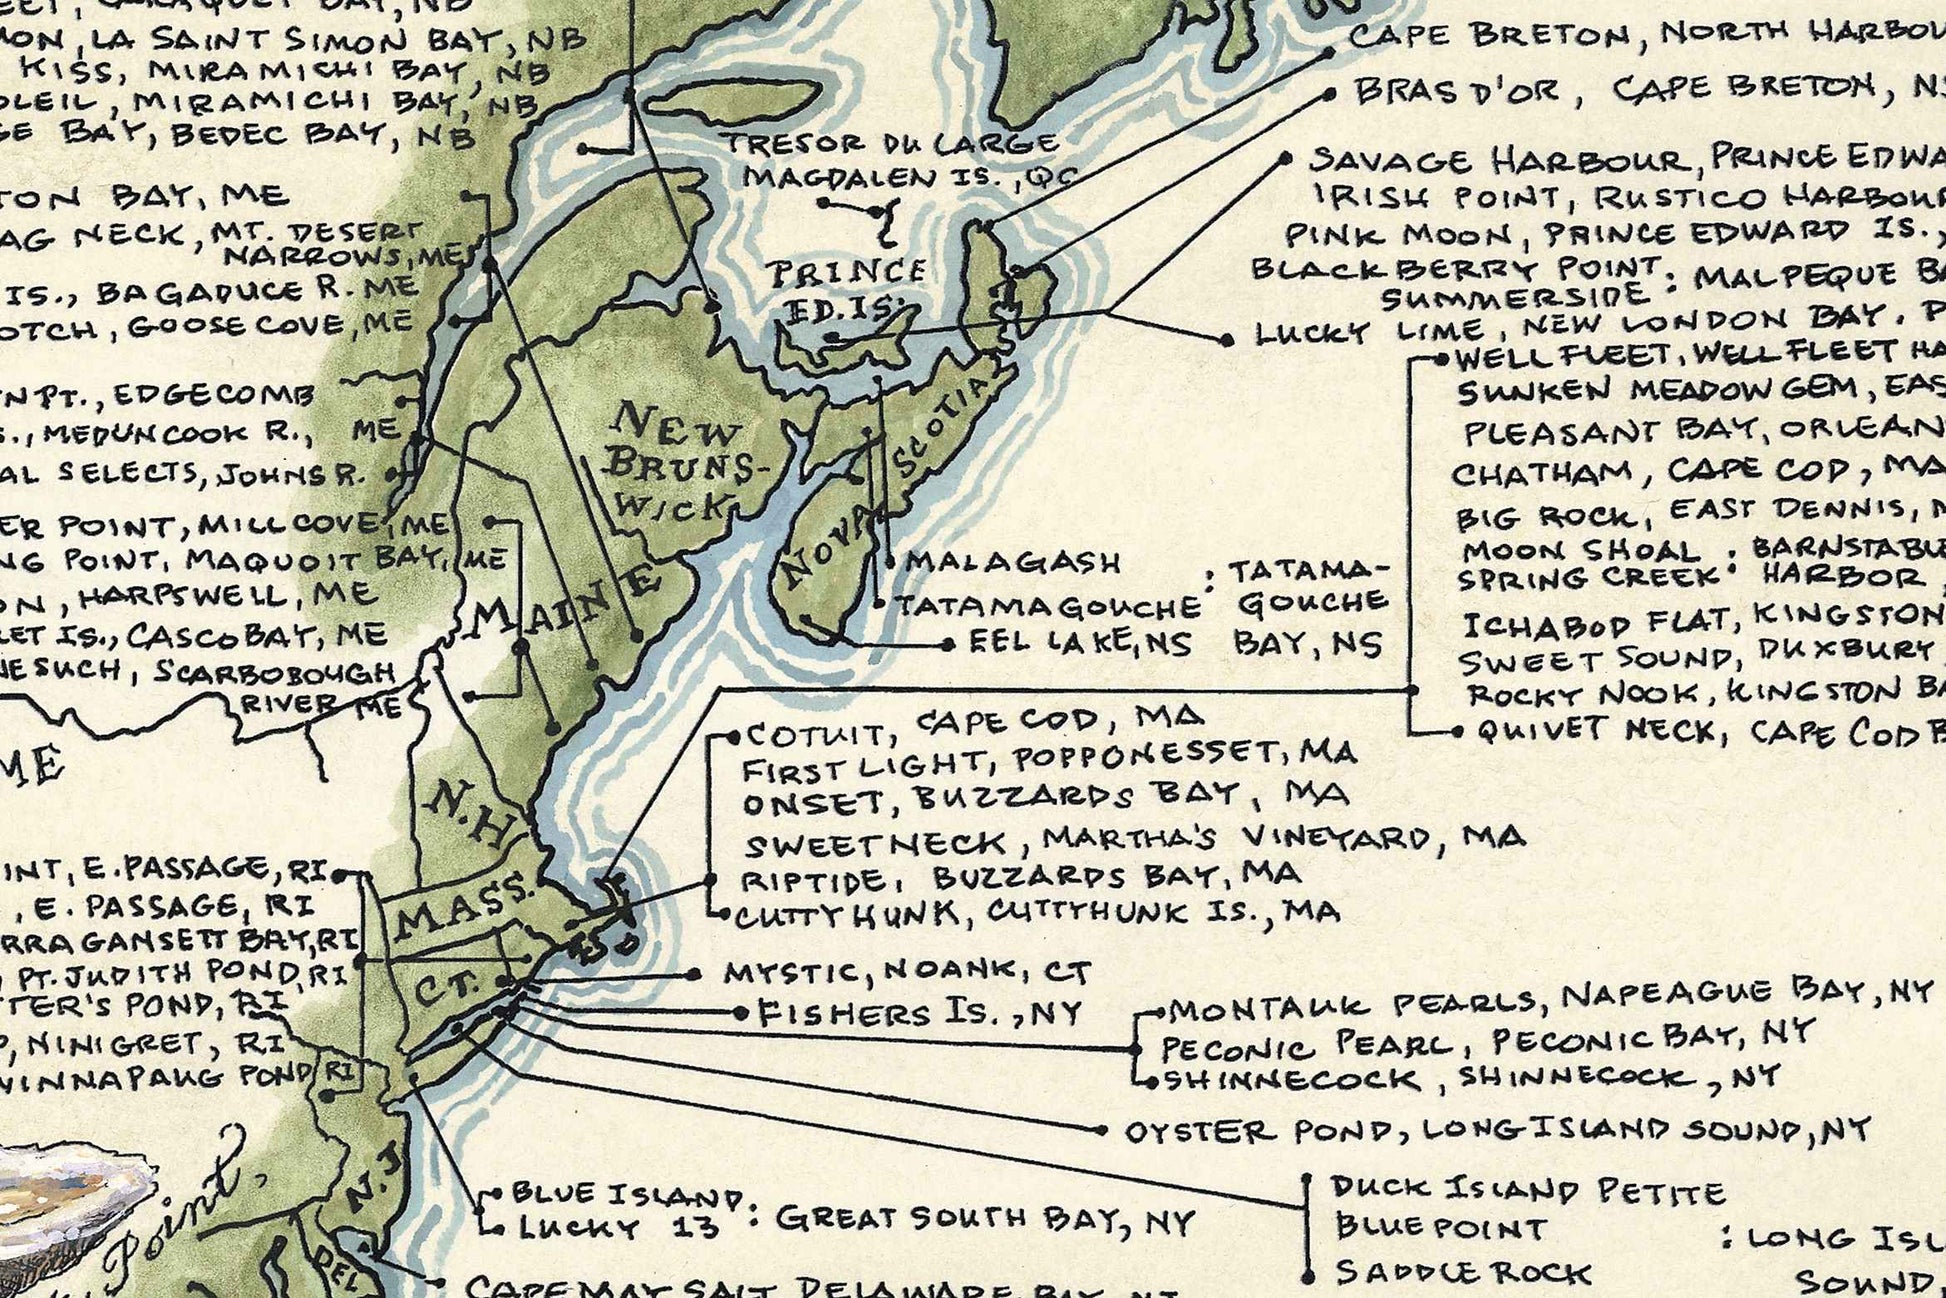 CARAQUET BAY, NB
LA SAINT SIMON BAY, NB
KISS, MIRAMICHI BAY, NB
MIRAMICHI BAY, NB
BAY, BEDEC BAY, NB
BAY, ME
NECK, MT. DESERT
NARROWS, ME
IS., BAGADUCE R. ME
GOOSE COVE, ME
PT., EDGECOMB
MEDUNCOOK R., ME
SELECTS, JOHNS R.
POINT, MILL COVE, ME
POINT, MAQUOIT BAY, ME
HARPSWELL, ME
IS., CASCO BAY, ME
SCARBOBOUGH
RIVER ME
E. PASSAGE, RI
, E. PASSAGE, RI
BAY, RI
PT. JUDITH POND, RI
POND, RI
NINIGRET, RI
POND RI
Point,
TRESOR DU LARGE
MAGDALEN IS., QC
PRINCE
ED. IS.
NEW
BRUNS-
WICK
NOVA SCOTIA
MAINE
N.H.
MASS.
CT.
N.J.
DEL
CAPE BRETON, NORTH
BRAS D'OR, CAPE BRETON,
SAVAGE HARBOUR, PRINCE
IRISH POINT, RUSTICO
PINK MOON, PRINCE EDWARD IS.,
BLACKBERRY POINT : MALPEQUE
SUMMERSIDE
LUCKY LIME, NEW LONDON BAY.
WELLFLEET, WELLFLEET
SUNKEN MEADOW GEM,
PLEASANT BAY,
CHATHAM, CAPE COD,
BIG ROCK, EAST DENNIS,
MOON SHOAL :
SPRING CREEK HARBOR,
ICHABOD FLAT, KINGSTON
SWEET SOUND, DUXBURY
ROCKY NOOK, KINGSTON
QUIVET NECK, CAPE COD
MALAGASH : TATAMA-
TATAMAGOUCHE GOUCHE
EEL LAKE, NS BAY, NS
COTUIT, CAPE COD, MA
FIRST LIGHT, POPPONESSET, MA
ONSET, BUZZARDS BAY, MA
SWEET NECK, MARTHA'S VINEYARD, MA
RIPTIDE, BUZZARDS BAY, MA
CUTTYHUNK, CUTTYHUNK IS., MA
MYSTIC, NOANK, CT
FISHERS IS., NY
MONTAUK PEARLS, NAPEAGUE BAY, NY
PECONIC PEARL, PECONIC BAY, NY
SHINNECOCK, SHINNECOCK, NY
OYSTER POND, LONG ISLAND SOUND, NY
DUCK ISLAND PETITE
BLUEPOINT : LONG
SADDLE ROCK SOUND,
BLUE ISLAND : GREAT SOUTH BAY, NY
LUCKY 13
CAPE MAY SALT DELAWARE BAY, NJ